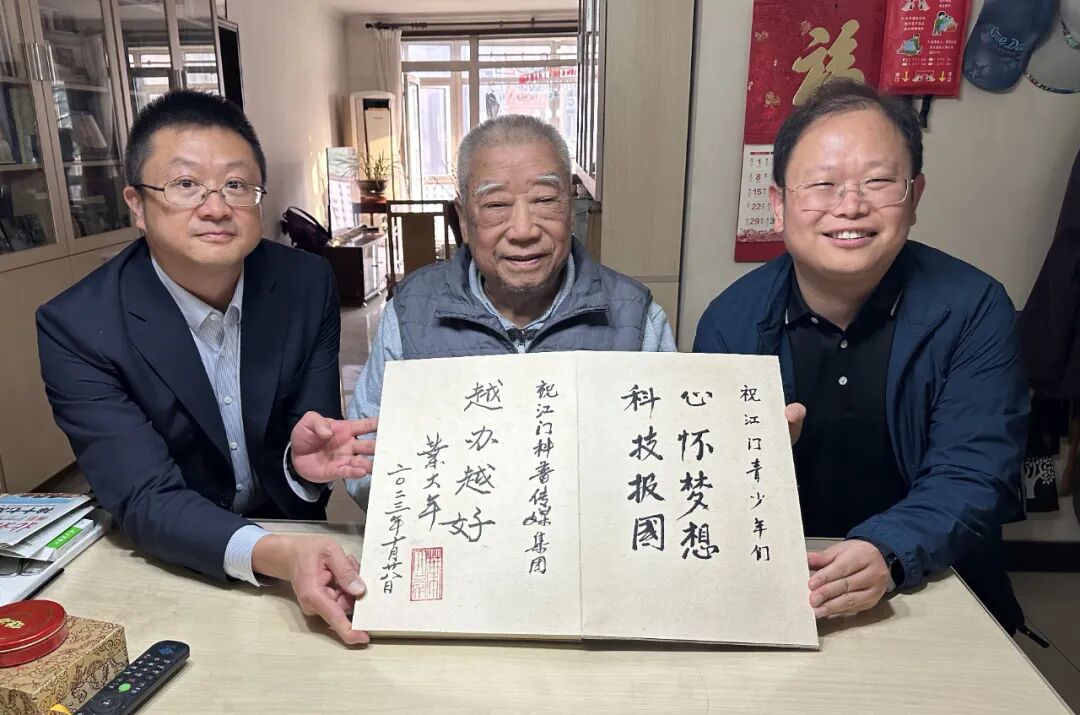 祝江门青少年们
心怀梦想
科技报國
祝江门科普传媒集团
越办越好
葉大年
二〇二三年十月廿八日
福
1
8
15
22
29